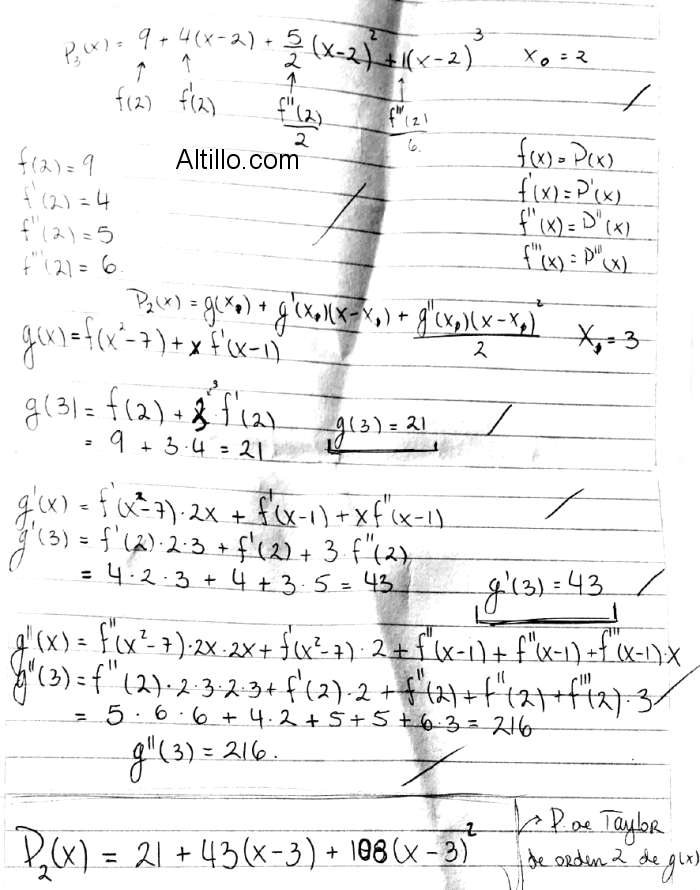 P₃(x) = 9 + 4(x-2) + 5/2 (x-2)² + 1(x-2)³   x₀ = 2
↑ ↑ ↑ ↑
f(2)   f'(2)   f''(2)/2   f'''(2)/6
Altillo.com
f(2) = 9
f'(2) = 4
f''(2) = 5
f'''(2) = 6.
f(x) = P(x)
f'(x) = P'(x)
f''(x) = P''(x)
f'''(x) = P'''(x)
P₂(x) = g(x₀) + g'(x₀)(x-x₀) + g''(x₀)(x-x₀)²/2   x₀ = 3
g(x) = f(x²-7) + x f'(x-1)
g(3) = f(2) + 3 f'(2)
= 9 + 3·4 = 21   g(3) = 21
g'(x) = f'(x²-7)·2x + f'(x-1) + x f''(x-1)
g'(3) = f'(2)·2·3 + f'(2) + 3 f''(2)
= 4·2·3 + 4 + 3·5 = 43   g'(3) = 43
g''(x) = f''(x²-7)·2x·2x + f'(x²-7)·2 + f''(x-1) + f''(x-1) + f'''(x-1)·x
g''(3) = f''(2)·2·3·2·3 + f'(2)·2 + f''(2) + f''(2) + f'''(2)·3
= 5·6·6 + 4·2 + 5 + 5 + 6·3 = 216
g''(3) = 216.
P₂(x) = 21 + 43(x-3) + 108(x-3)²
→ P. de Taylor
de orden 2 de g(x)